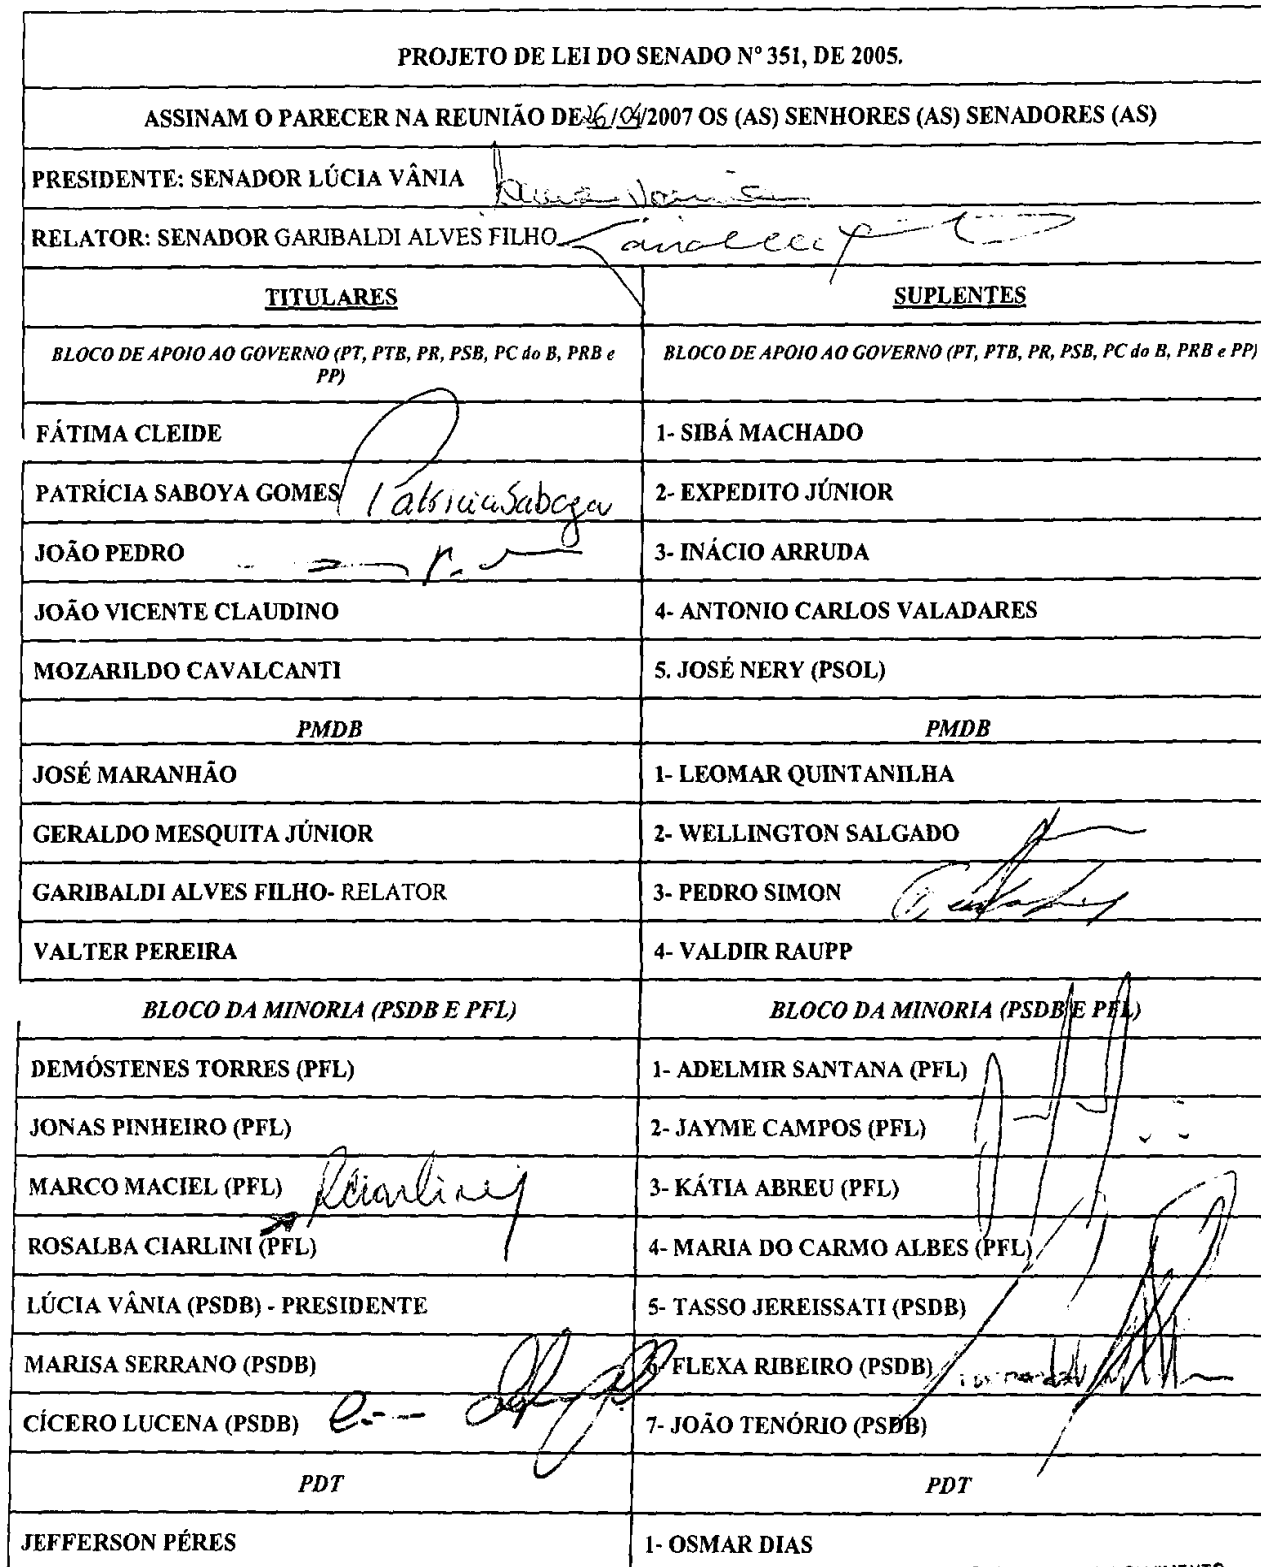 PROJETO DE LEI DO SENADO Nº 351, DE 2005.
ASSINAM O PARECER NA REUNIÃO DE 26/04/2007 OS (AS) SENHORES (AS) SENADORES (AS)
PRESIDENTE: SENADOR LÚCIA VÂNIA
RELATOR: SENADOR GARIBALDI ALVES FILHO
TITULARES SUPLENTES
BLOCO DE APOIO AO GOVERNO (PT, PTB, PR, PSB, PC do B, PRB e PP) BLOCO DE APOIO AO GOVERNO (PT, PTB, PR, PSB, PC do B, PRB e PP)
FÁTIMA CLEIDE 1- SIBÁ MACHADO
PATRÍCIA SABOYA GOMES Patricia Saboya 2- EXPEDITO JÚNIOR
JOÃO PEDRO 3- INÁCIO ARRUDA
JOÃO VICENTE CLAUDINO 4- ANTONIO CARLOS VALADARES
MOZARILDO CAVALCANTI 5. JOSÉ NERY (PSOL)
PMDB PMDB
JOSÉ MARANHÃO 1- LEOMAR QUINTANILHA
GERALDO MESQUITA JÚNIOR 2- WELLINGTON SALGADO
GARIBALDI ALVES FILHO- RELATOR 3- PEDRO SIMON
VALTER PEREIRA 4- VALDIR RAUPP
BLOCO DA MINORIA (PSDB E PFL) BLOCO DA MINORIA (PSDB E PFL)
DEMÓSTENES TORRES (PFL) 1- ADELMIR SANTANA (PFL)
JONAS PINHEIRO (PFL) 2- JAYME CAMPOS (PFL)
MARCO MACIEL (PFL) RCiarlini 3- KÁTIA ABREU (PFL)
ROSALBA CIARLINI (PFL) 4- MARIA DO CARMO ALBES (PFL)
LÚCIA VÂNIA (PSDB) - PRESIDENTE 5- TASSO JEREISSATI (PSDB)
MARISA SERRANO (PSDB) 6- FLEXA RIBEIRO (PSDB)
CÍCERO LUCENA (PSDB) 7- JOÃO TENÓRIO (PSDB)
PDT PDT
JEFFERSON PÉRES 1- OSMAR DIAS